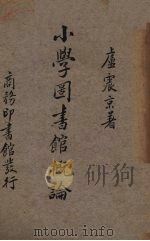 盧震京著
小學圖書館概論
商務印書館發行